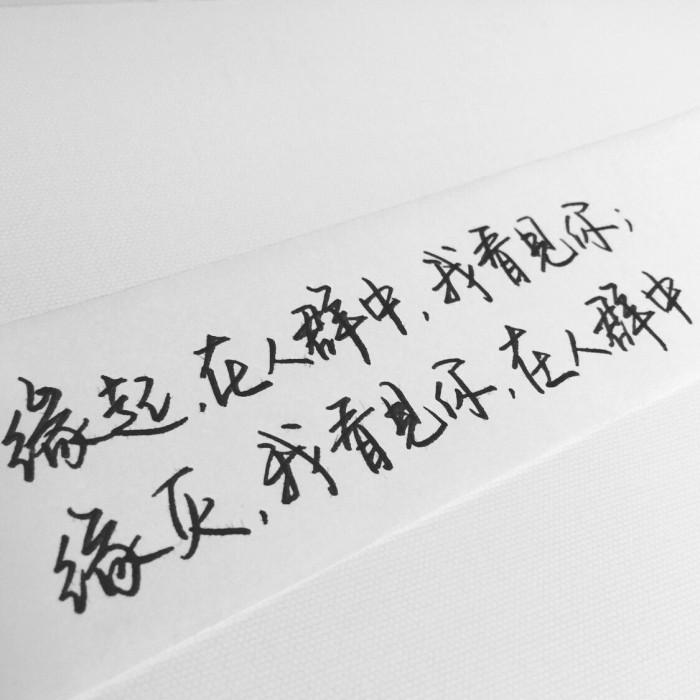 缘起,在人群中,我看见你;
缘灭,我看见你,在人群中